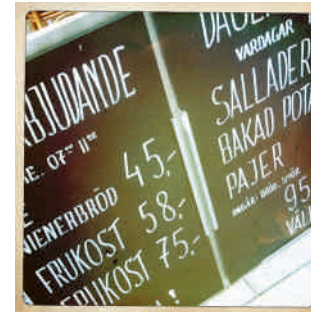 BJUDANDE
07 11
45:-
WIENERBRÖD
FRUKOST 58:-
FRUKOST 75:-
DAGE
VARDAGAR
SALLADER
BAKAD POTA
PAJER
95
VÄL